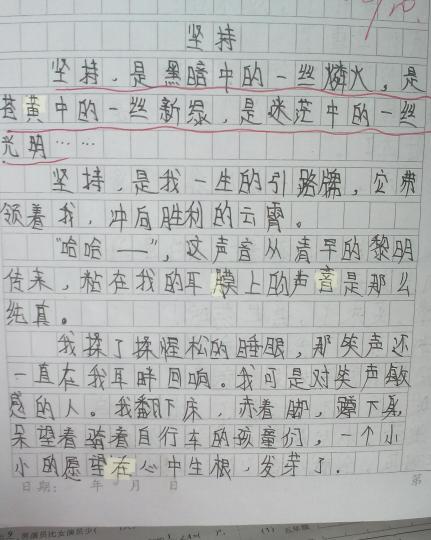 坚持
坚持，是黑暗中的一丝燐火，是
苍黄中的一丝新绿，是迷茫中的一丝
光明……
坚持，是我一生的引路牌，它带
领着我，冲向胜利的云霄。
“哈哈——”，这声音从清早的黎明
传来，粘在我的耳膜上的声音是那么
纯真。
我揉了揉惺松的睡眼，那笑声还
一直在我耳畔回响。我可是对笑声敏
感的人。我翻下床，赤着脚，蹲下身，
呆望着骑着自行车的孩童们，一个小
小的愿望在心中生根，发芽了。
日期： 年 月 日 第